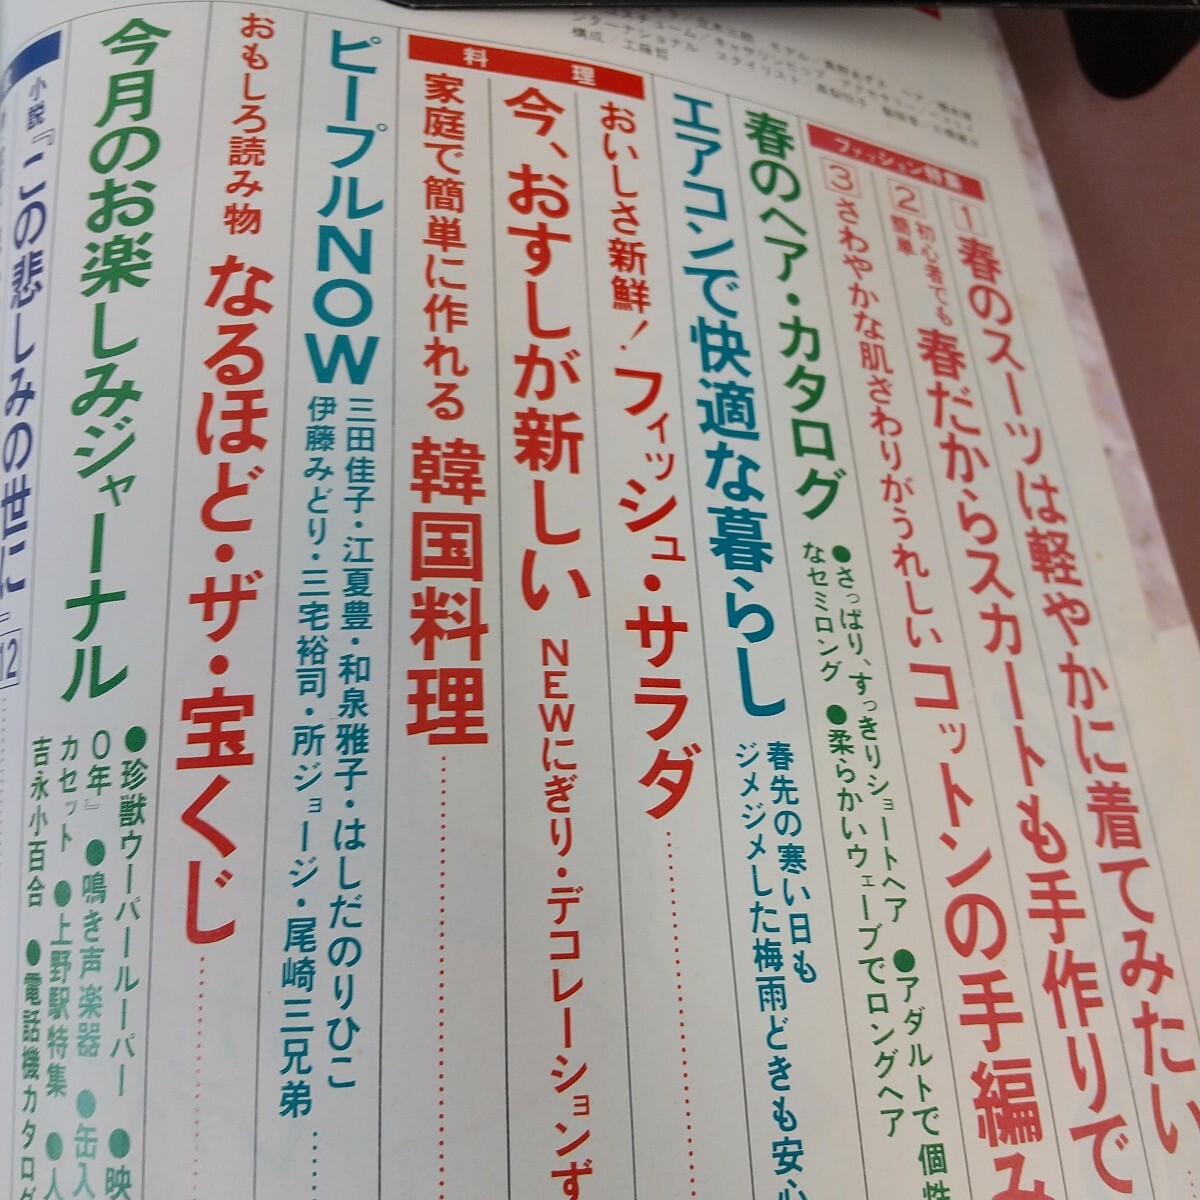 ファッション特集
1 春のスーツは軽やかに着てみたい
2 初心者でも簡単 春だからスカートも手作りで
3 さわやかな肌ざわりがうれしい コットンの手編み
春のヘア・カタログ
●さっぱり、すっきりショートヘア ●アダルトで個性
なセミロング ●柔らかいウェーブでロングヘア
エアコンで快適な暮らし
春先の寒い日も
ジメジメした梅雨どきも安心
料理
おいしさ新鮮! フィッシュ・サラダ
今、おすしが新しい NEWにぎり・デコレーションず
家庭で簡単に作れる 韓国料理
ピープルNOW
三田佳子・江夏豊・和泉雅子・はしだのりひこ
伊藤みどり・三宅裕司・所ジョージ・尾崎三兄弟
おもしろ読み物 なるほど・ザ・宝くじ
今月のお楽しみジャーナル
●珍獣ウーパールーパー ●映
〇年』 ●鳴き声楽器 ●缶入
カセット ●上野駅特集 ●人
吉永小百合 ●電話機カタログ
小説『この悲しみの世に』 12